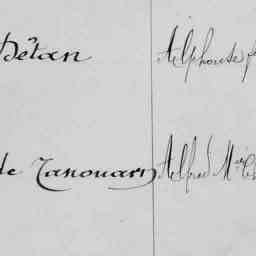 Bétan Alphonse
de Zanouarn Alfred M